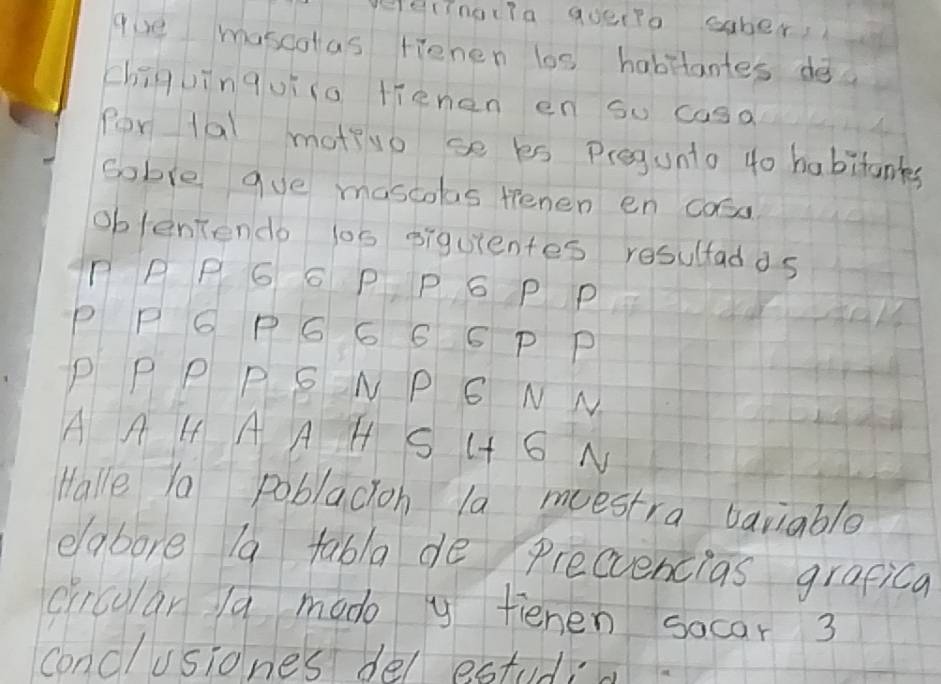 veterinaria querio saber
que mascotas tienen los habitantes de
chiquinquira tienen en su casa
Por tal motivo se les Pregunto 40 habitantes
sobre que mascotas tienen en casa
obteniendo los siguientes resultados
P P P G G P P G P P
P P G P G G G G P P
P P P P G N P G N N
A A H A A H S H G N
Halle la poblacion la muestra variable
elabore la tabla de Precuencias grafica
circular la modo y tienen sacar 3
conclusiones del estudio